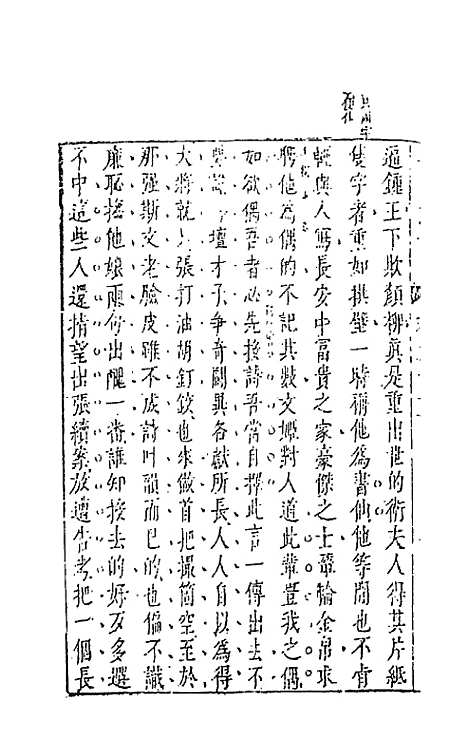 逼鍾王下欺顏柳真是重出世的衛夫人得其片紙
隻字者重如拱璧一時稱他為書仙他等閒也不肯
輕與人寫長安中富貴之家豪傑之士輦輸金帛求
聘他為偶的不記其數文姬對人道此輩豈我之偶
如欲偶吾者必先投詩吾當自擇此言一傳出去不
壇才子爭奇鬭異各獻所長人人自以為得
大將就是張打油胡釘鉸也來做首把撮箇空至於
那強斯文老臉皮雖不成詩叶韻而已的也偏不識
廉恥揍他娘兩句出醜一番誰知投去的好歹多選
不中這些人還指望出張續案放遭告考把一個長